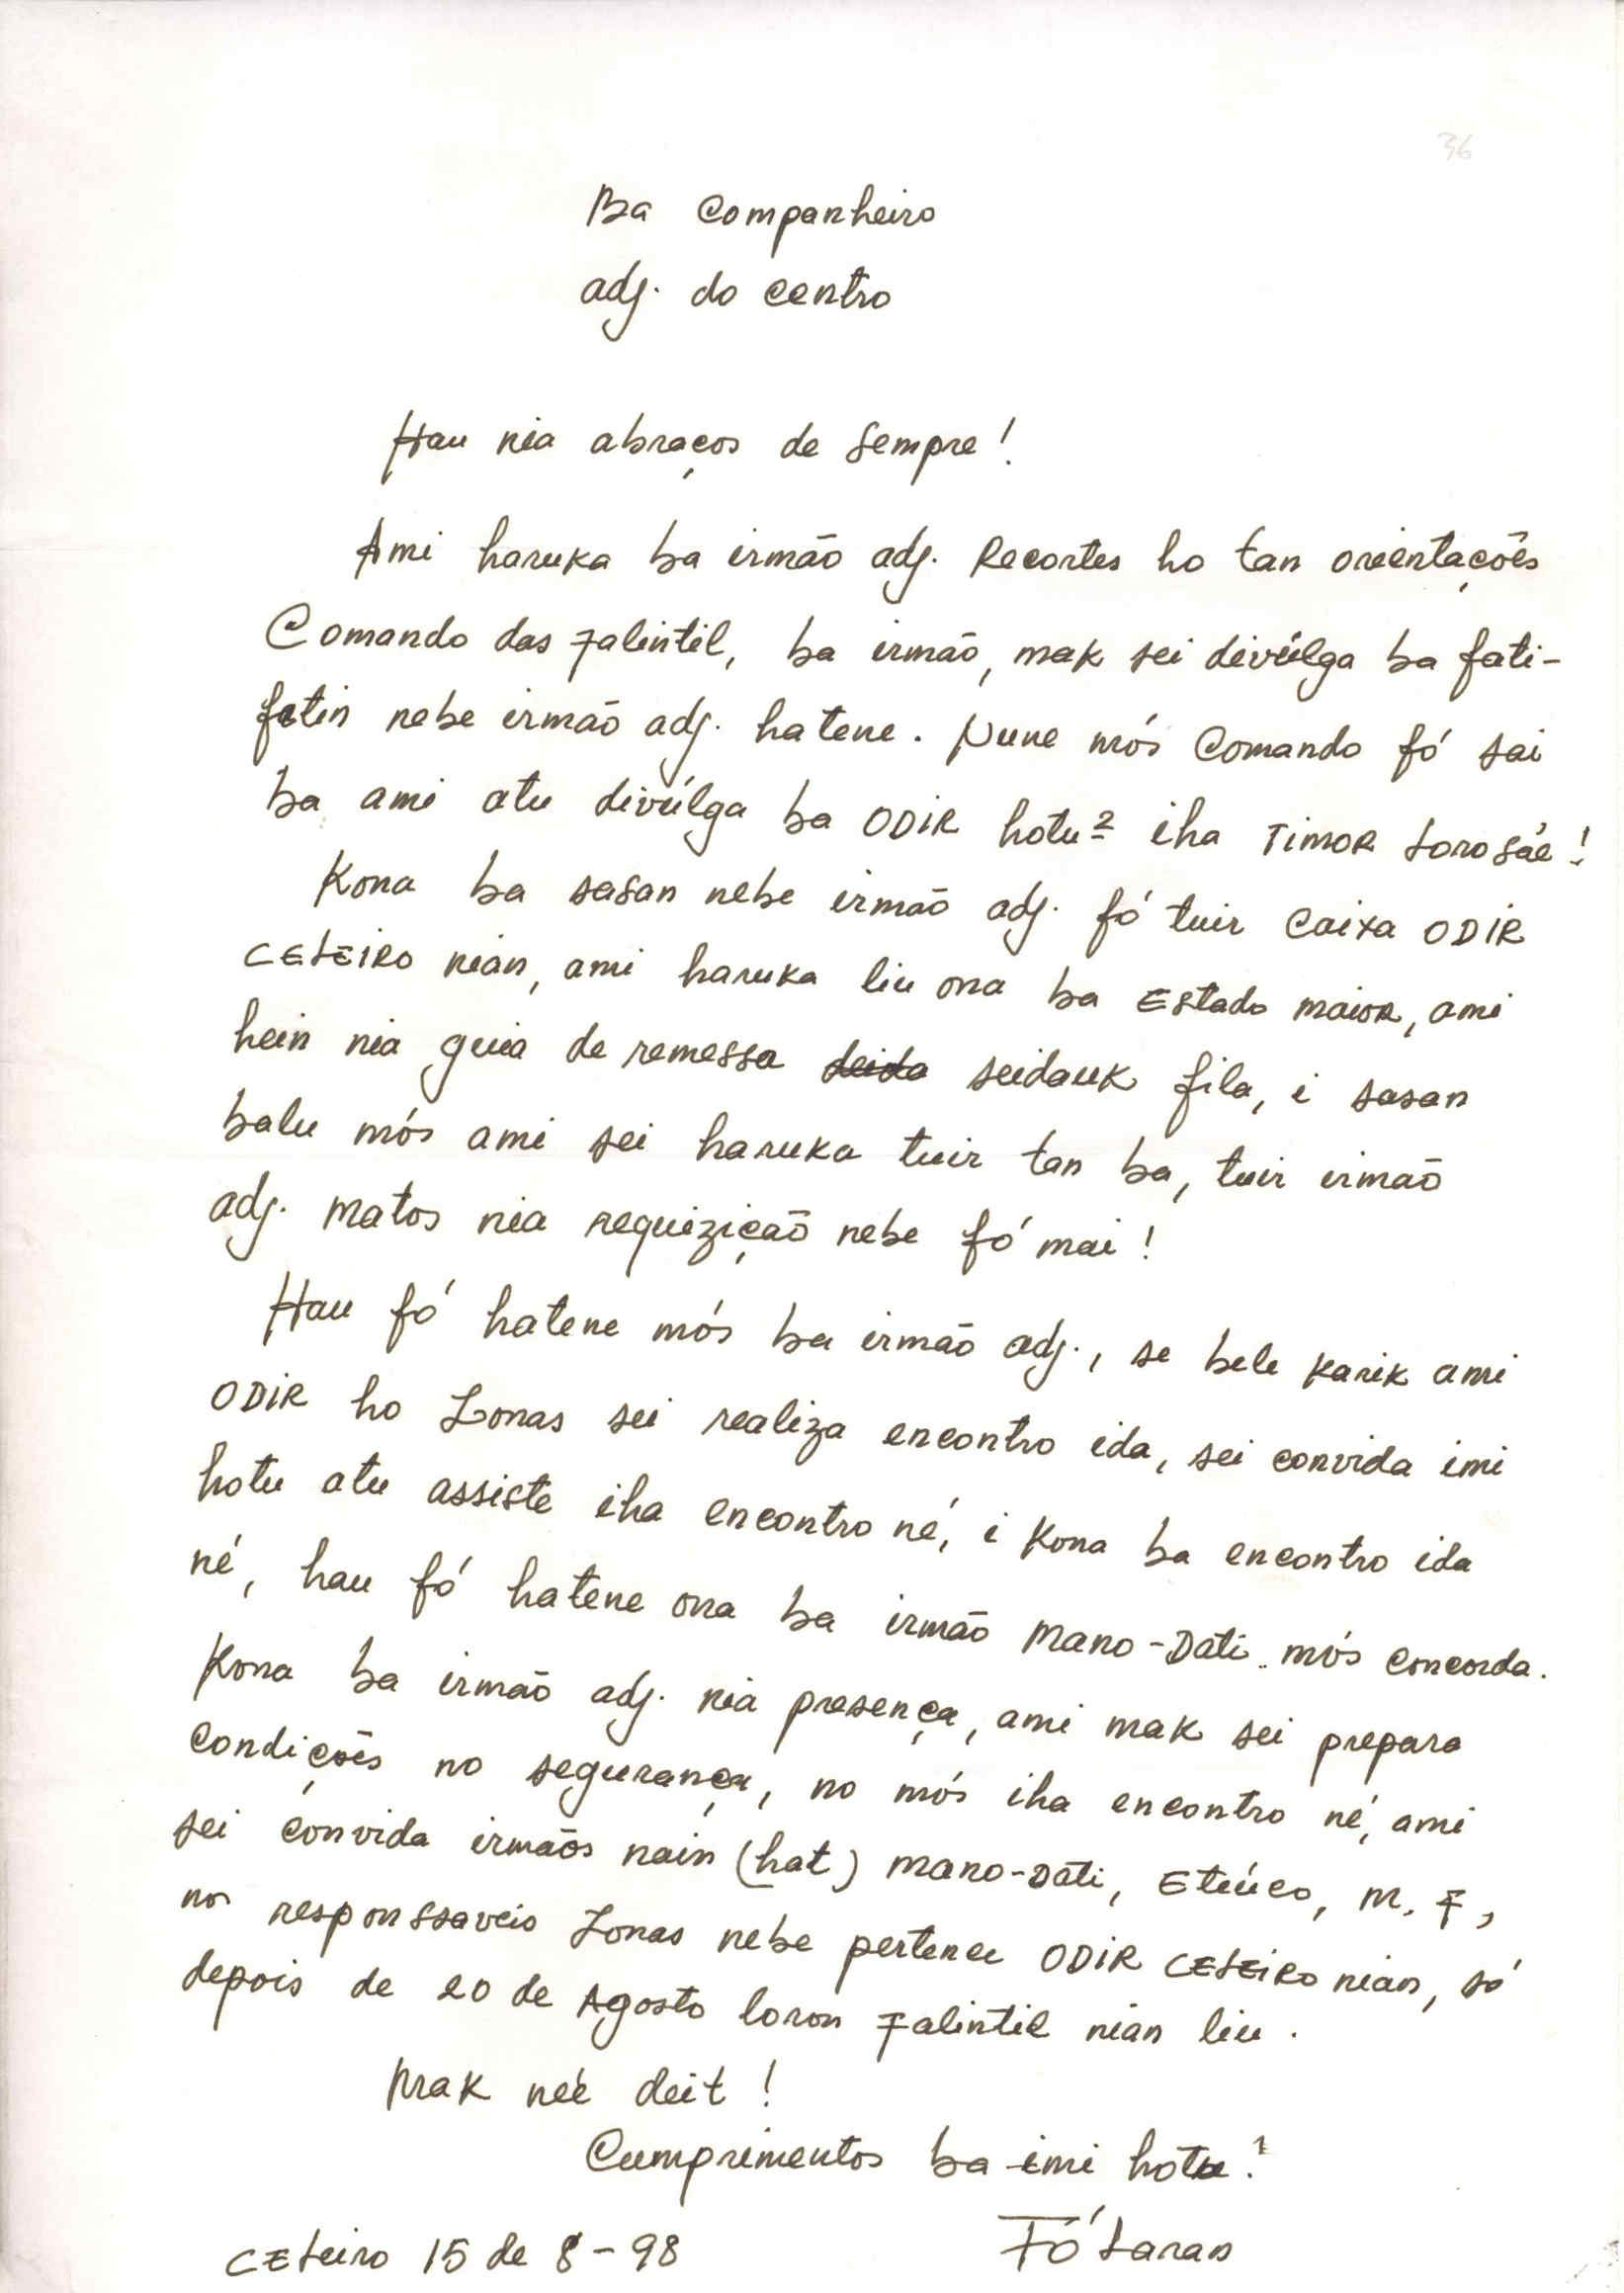 36
Ba Companheiro
adj. do centro
Hau nia abraços de sempre!
Ami haruka ba irmão adj. Recortes ho tan orientações
Comando das Falintil, ba irmão, mak sei divúlga ba fati-
fatin nebe irmão adj. hatene. Nune mós Comando fó sai
ba ami atu divúlga ba ODIR hotu2 iha TIMOR Lorosáe!
Kona ba sasan nebe irmão adj. fó tuir Caixa ODIR
CELEIRO nian, ami haruka liu ona ba Estado maior, ami
hein nia guia de remessa seidauk fila, i sasan
balu mós ami sei haruka tuir tan ba, tuir irmão
adj. Matos nia requizição nebe fó mai!
Hau fó hatene mós ba irmão adj., se bele karik ami
ODIR ho Zonas sei realiza encontro ida, sei convida imi
hotu atu assiste iha encontro né, i kona ba encontro ida
né, hau fó hatene ona ba irmão Mano-Dati mós concorda.
Kona ba irmão adj. nia presença, ami mak sei prepara
Condições no segurança, no mós iha encontro né, ami
sei convida irmãos nain (hat) Mano-Dati, Etúco, M. F,
no responssaveis Zonas nebe pertence ODIR CELEIRO nian, só
depois de 20 de Agosto loron Falintil nian liu.
Mak néé deit!
Cumprimentos ba imi hotu!
CELeiro 15 de 8-98
Fó Laran